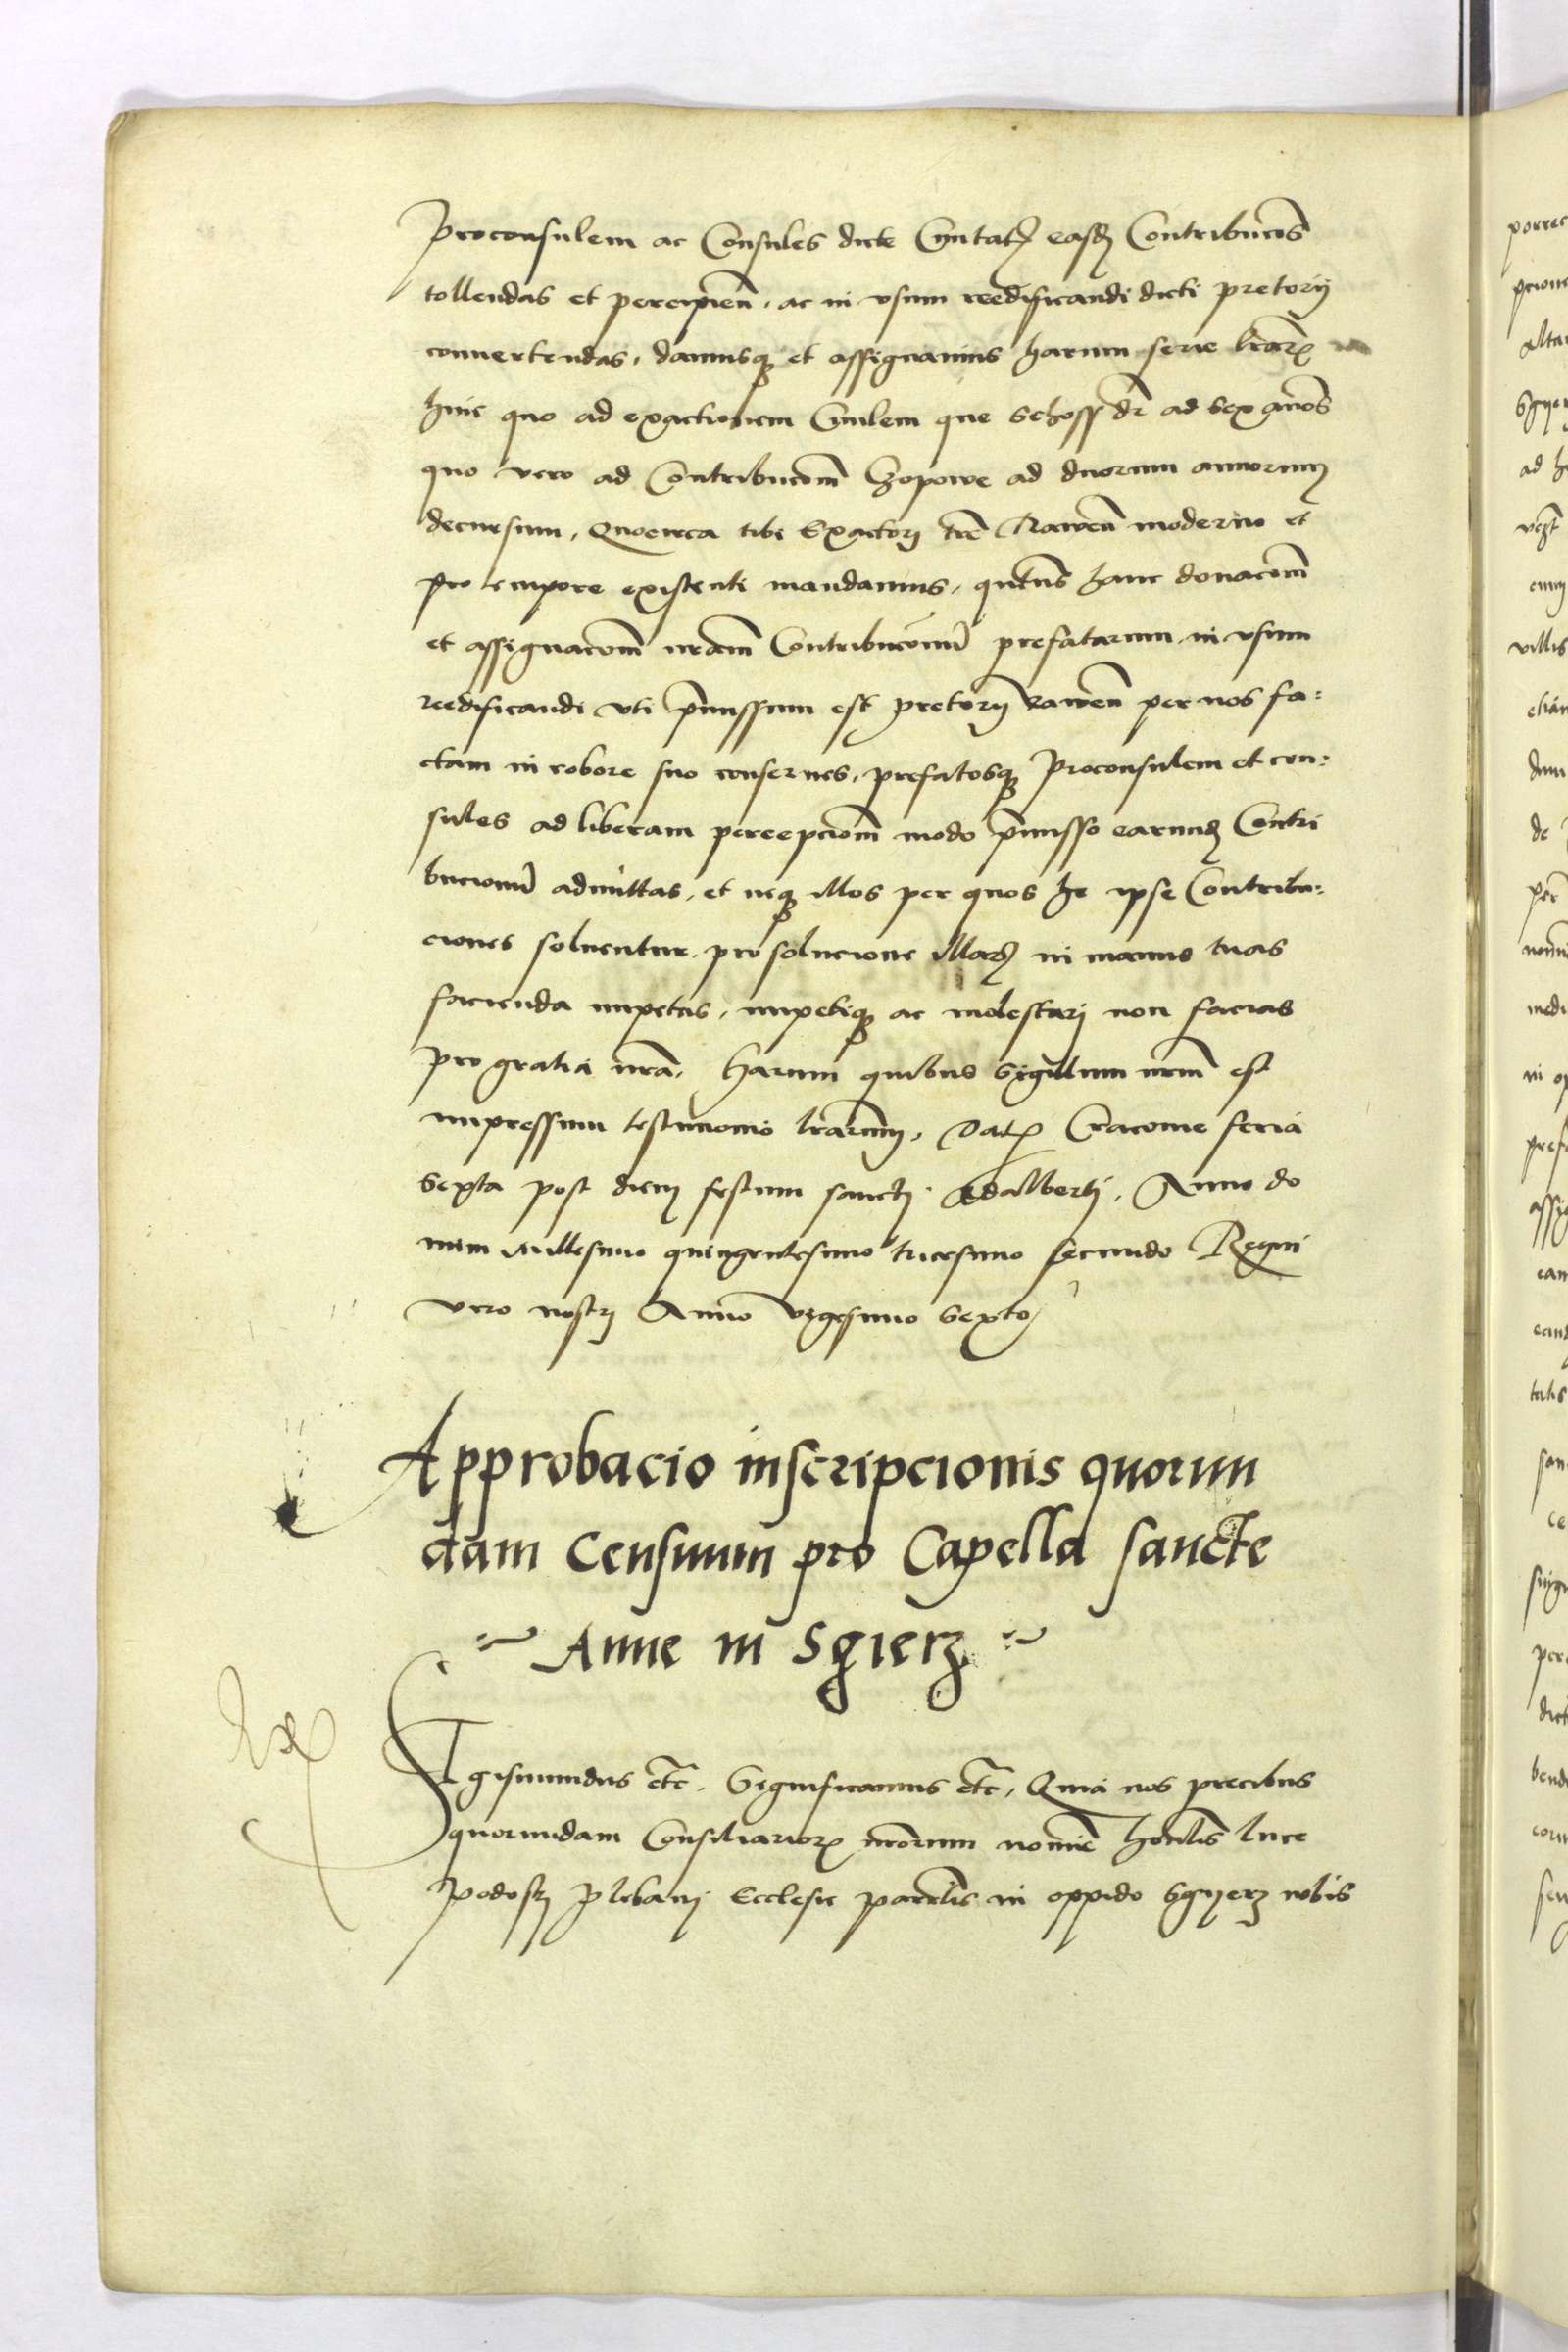 Proconsulem ac Consules dicte Civitatis easdem Contribuciones
tollendas et percipien. ac in vsum reedificandi dicti pretorii
convertendas, damusque et assignamus harum serie literarum
hinc quo ad exactionem Civilem que Schoss dr ad sex annos
quo vero ad Contribucionem Czopowe ad duorum annorum
decursum, Quocirca tibi Exactori tre Rawen moderno et
pro tempore existenti mandamus, quatenus hanc donacionem
et assignacionem nram Contribucionum prefatarum in vsum
reedificandi vti premissum est pretorii Rawen per nos fa:
ctam in robore suo conserves, prefatosque Proconsulem et con:
sules ad liberam percepcionem modo premisso earundem Contri
bucionum admittas, et neque illos per quos he ipse Contribu:
ciones solventur, pro solucione illarum in manus tuas
facienda impetas, impetique ac molestari non facias
pro gratia nra, Harum quibus Sigillum nrm est
impressum testimonio lrarum, Dat. Cracovie feria
Sexta post diem festum sancti Adalberti, Anno do
mini Millesimo quingentesimo tricesimo secundo Regni
vero nostri Anno vigesimo Sexto
Approbacio inscripcionis quorun
dam Censuum pro Capella sancte
Anne in Sgierz
Sigismundus etc. Significamus etc, Quia nos precibus
quorundam Consiliariorum nrorum nomine honlis Luce
Plebani Ecclesie parrlis in oppido Sgyerz nobis
porrec
altar
ad
villis
de